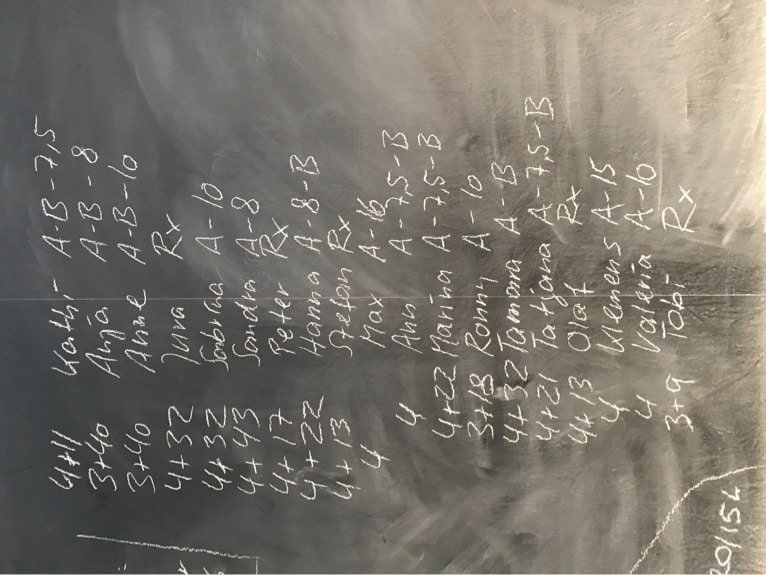 4+11 Kathi A-B-7,5
3+40 Anja A-B-8
3+40 Anne A-B-10
4+32 Jura Rx
4+32 Sabrina A-10
4+43 Sandra A-8
4+17 Peter Rx
4+22 Hanna A-8-B
4+13 Stefan Rx
4 Max A-16
4 Ann A-7,5-B
4+22 Marina A-7,5-B
3+18 Ronny A-10
4+32 Tamara A-B
4+21 Tatjana A-7,5-B
4+13 Olaf Rx
4 Klemens A-15
4 Valeria A-10
3+9 Tobi Rx
20/15L